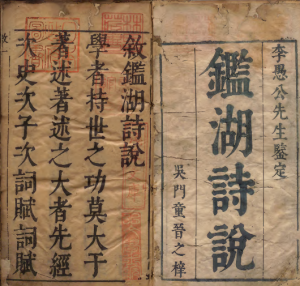 李愚公先生鑑定
鑑湖詩說
吳門童晉之梓
敘鑑湖詩說
學者持世之功莫大于
著述著述之大者先經
次史次子次詞賦詞賦